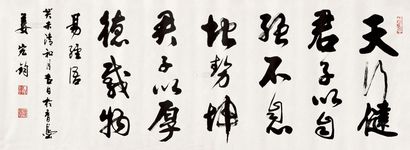 天行健
君子以自
强不息
地势坤
君子以厚
德载物
易经语
癸未清和月吉日於青岛
姜宏钧